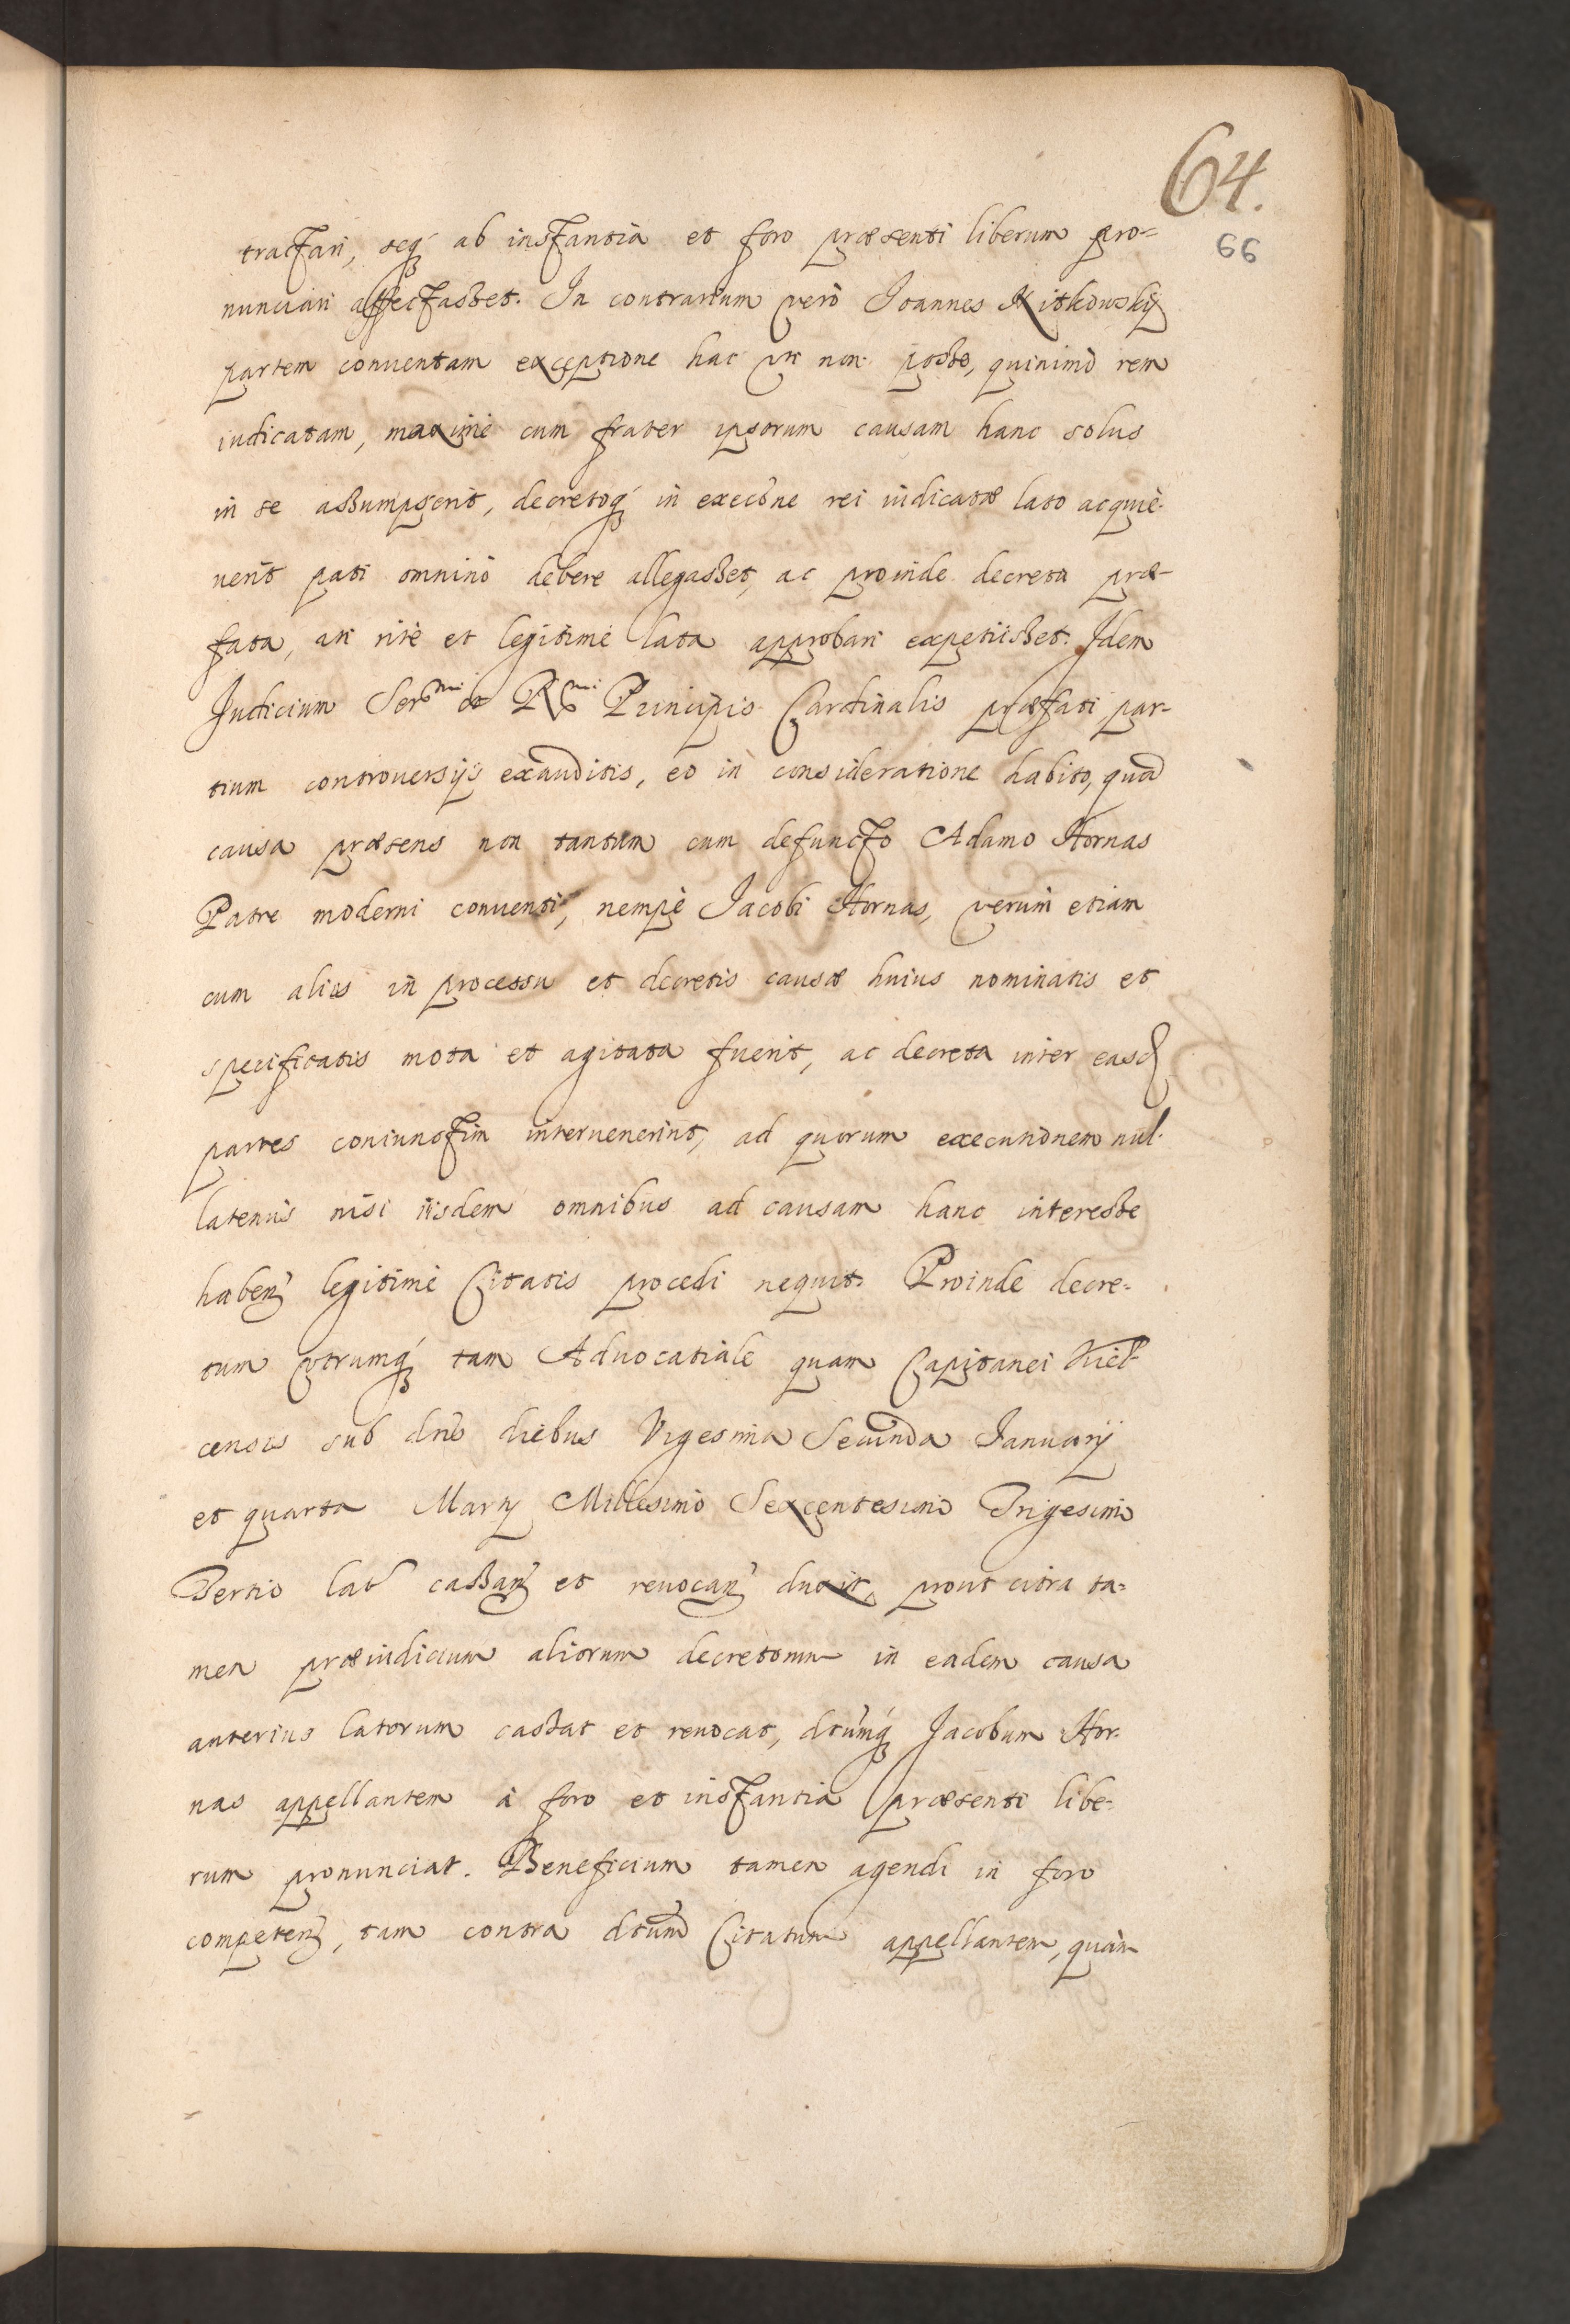 64.
66
tractari, seq́ ab instantia et foro præsenti liberum pro=
nunciari affectasset. In contrarium verò Joannes Kitkowskij
partem conuentam exceptione hac uti non posse, quinimò rem
iudicatam, maximè cum frater ipsorum causam hanc solus
in se assumpserit, decretoq́ in execõne rei iudicatæ lato acquiè-
uerit pati omninò debere allegasset, ac proinde decreta præ-
fata, uti ritè et legitimè lata approbari expetiisset. Idem
Judicium Ser.mi et R.mi Principis Cardinalis præfati par-
tium controuersijs exauditis, eo in consideratione habito, quod
causa præsens non tantùm cum defuncto Adamo Hornas
Patre moderni conuenti, nempè Jacobi Hornas, verùm etiam
cum alijs in processu et decretis causæ huius nominatis et
specificatis mota et agitata fuerit, ac decreta inter easd
partes coniunctim interuenerint, ad quorum executionem nul-
latenùs nisi iisdem omnibus ad causam hanc interesse
haben legitimè Citatis procedi nequit. Proinde decre=
tum vtrumq́ tam Aduocatiale quam Capitanei Kiel-
censis sub diebus Vigesima Secunda Januarij
et quarta Martij Millesimo Sexcentesimo Trigesimo
Tertio lat cassan et reuocan duxit, prout citra ta=
men præiudicium aliorum decretorum in eadem causa
anterius latorum cassat et reuocat, dtumq́ Jacobum Hor-
nas appellantem à foro et instantia præsenti libe-
rum pronunciat. Beneficium tamen agendi in foro
competen, tam contra dtum Citatum appellantem, quàm